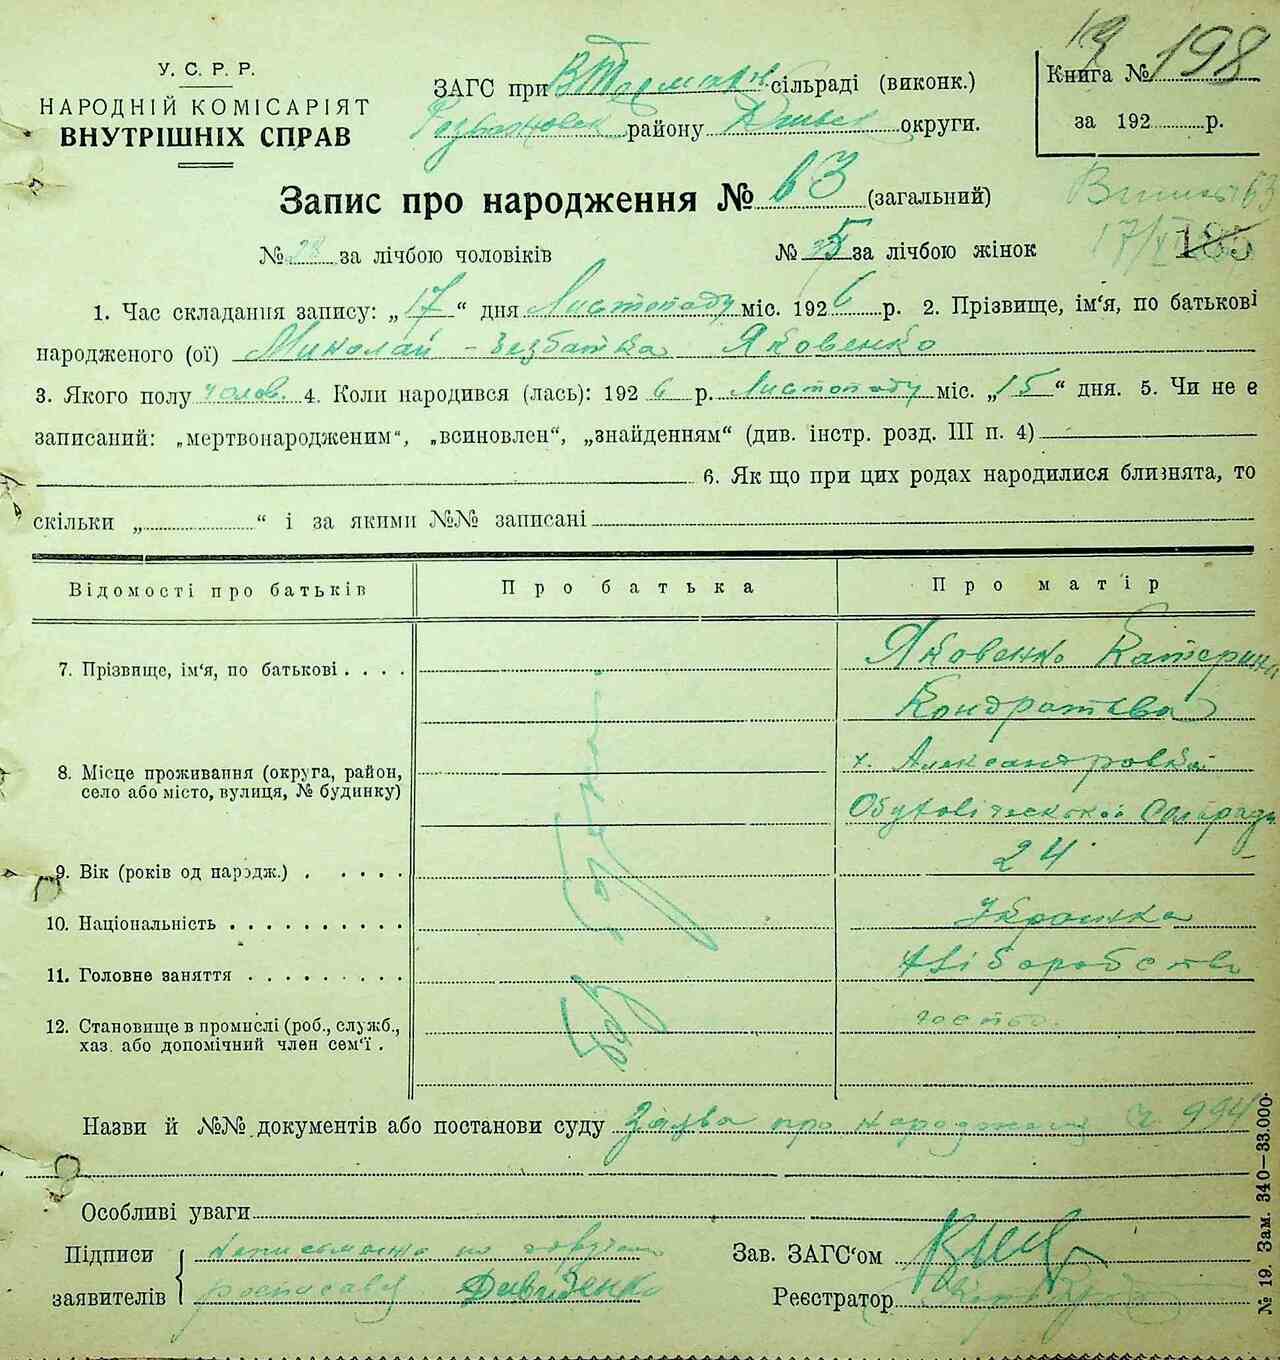 У. С. Р. Р.
НАРОДНІЙ КОМІСАРІЯТ
ВНУТРІШНІХ СПРАВ
ЗАГС при сільраді (виконк.)
району округи.
Книга № 198
за 192 р.
Запис про народження № 63 (загальний)
№ 28 за лічбою чоловіків
№ за лічбою жінок
185
1. Час складання запису: „17“ дня Листопаду міс. 1926 р. 2. Прізвище, ім‘я, по батькові
народженого (ої) Миколай - безбатька Яковенко
3. Якого полу чолов. 4. Коли народився (лась): 1926 р. Листопаду міс. „15“ дня. 5. Чи не є
записаний: „мертвонародженим“, „всиновлен“, „знайденням“ (див. інстр. розд. III п. 4)
6. Як що при цих родах народилися близнята, то
скільки „ “ і за якими №№ записані
Відомості про батьків
Про батька
Про матір
7. Прізвище, ім‘я, по батькові . . . .
Яковенко Катерина
Кондратьева
8. Місце проживання (округа, район,
село або місто, вулиця, № будинку)
х. Александровка
9. Вік (років од нардж.) . . . . .
24
10. Національність . . . . . . . . . .
Украинка
11. Головне заняття . . . . . . . . .
хліборобство
12. Становище в промислі (роб., служб.,
хаз. або допомічний член сем‘ї .
Без
Назви й №№ документів або постанови суду Заява про народження ч 994
Особливі уваги
Підписи
заявителів
росписався Давиденко
Зав. ЗАГС‘ом
Реєстратор
№ 19. Зам. 340–33.000.